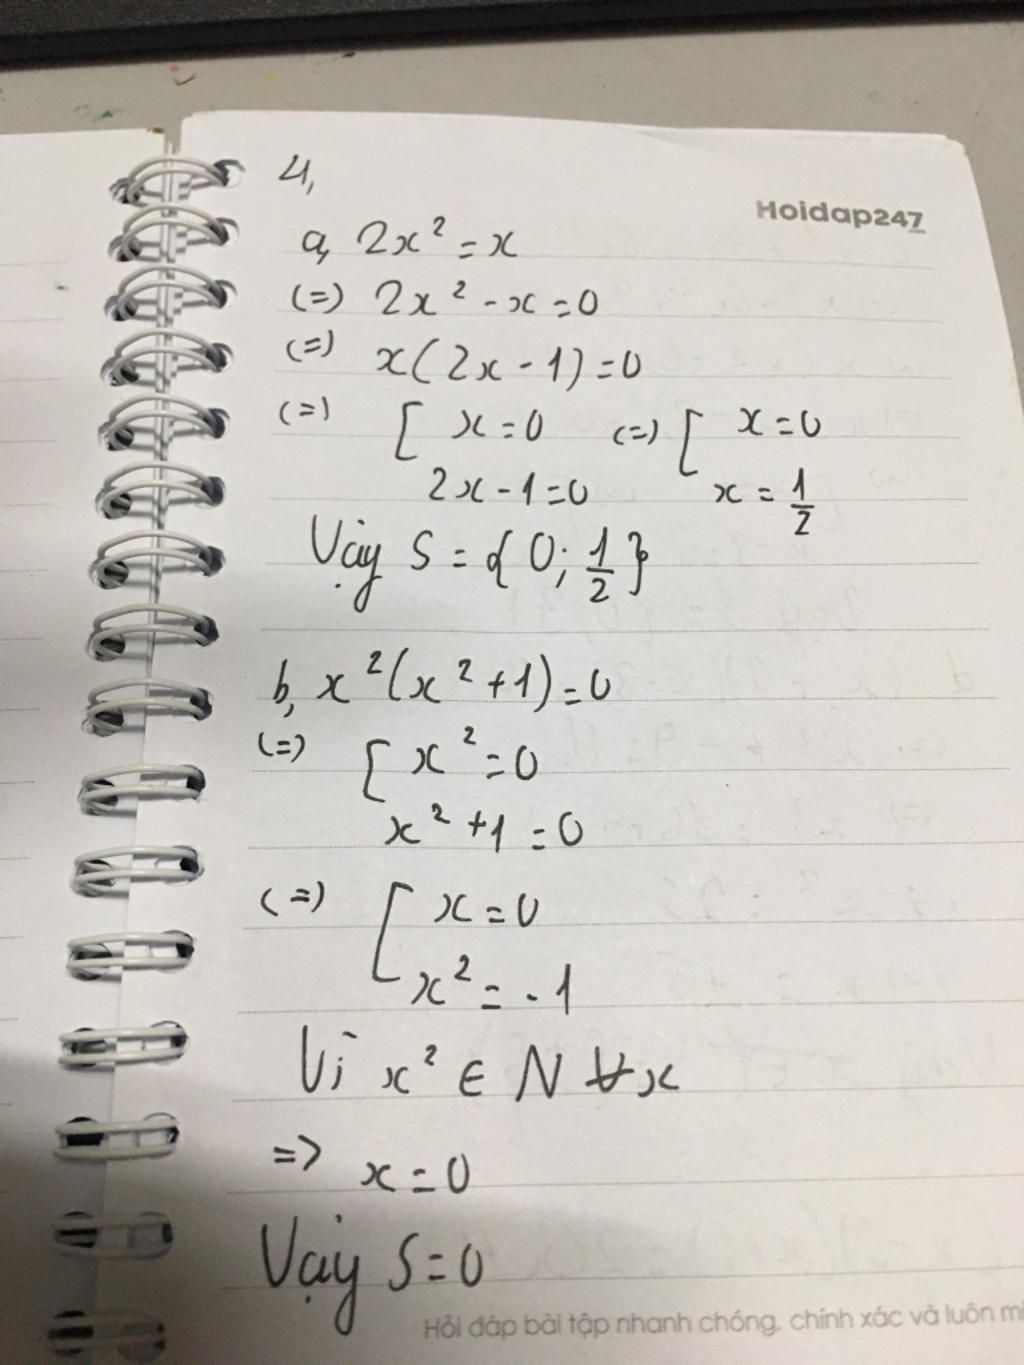 4,
Hoidap247
a, 2x² = x
(=) 2x² - x = 0
(=) x(2x - 1) = 0
(=) [ x = 0 (=) [ x = 0
2x - 1 = 0 x = 1/2
Vậy S = { 0; 1/2 }
b, x²(x² + 1) = 0
(=) [ x² = 0
x² + 1 = 0
(=) [ x = 0
x² = - 1
Vì x² ∈ N ∀x
=> x = 0
Vậy S = 0
Hỏi đáp bài tập nhanh chóng, chính xác và luôn